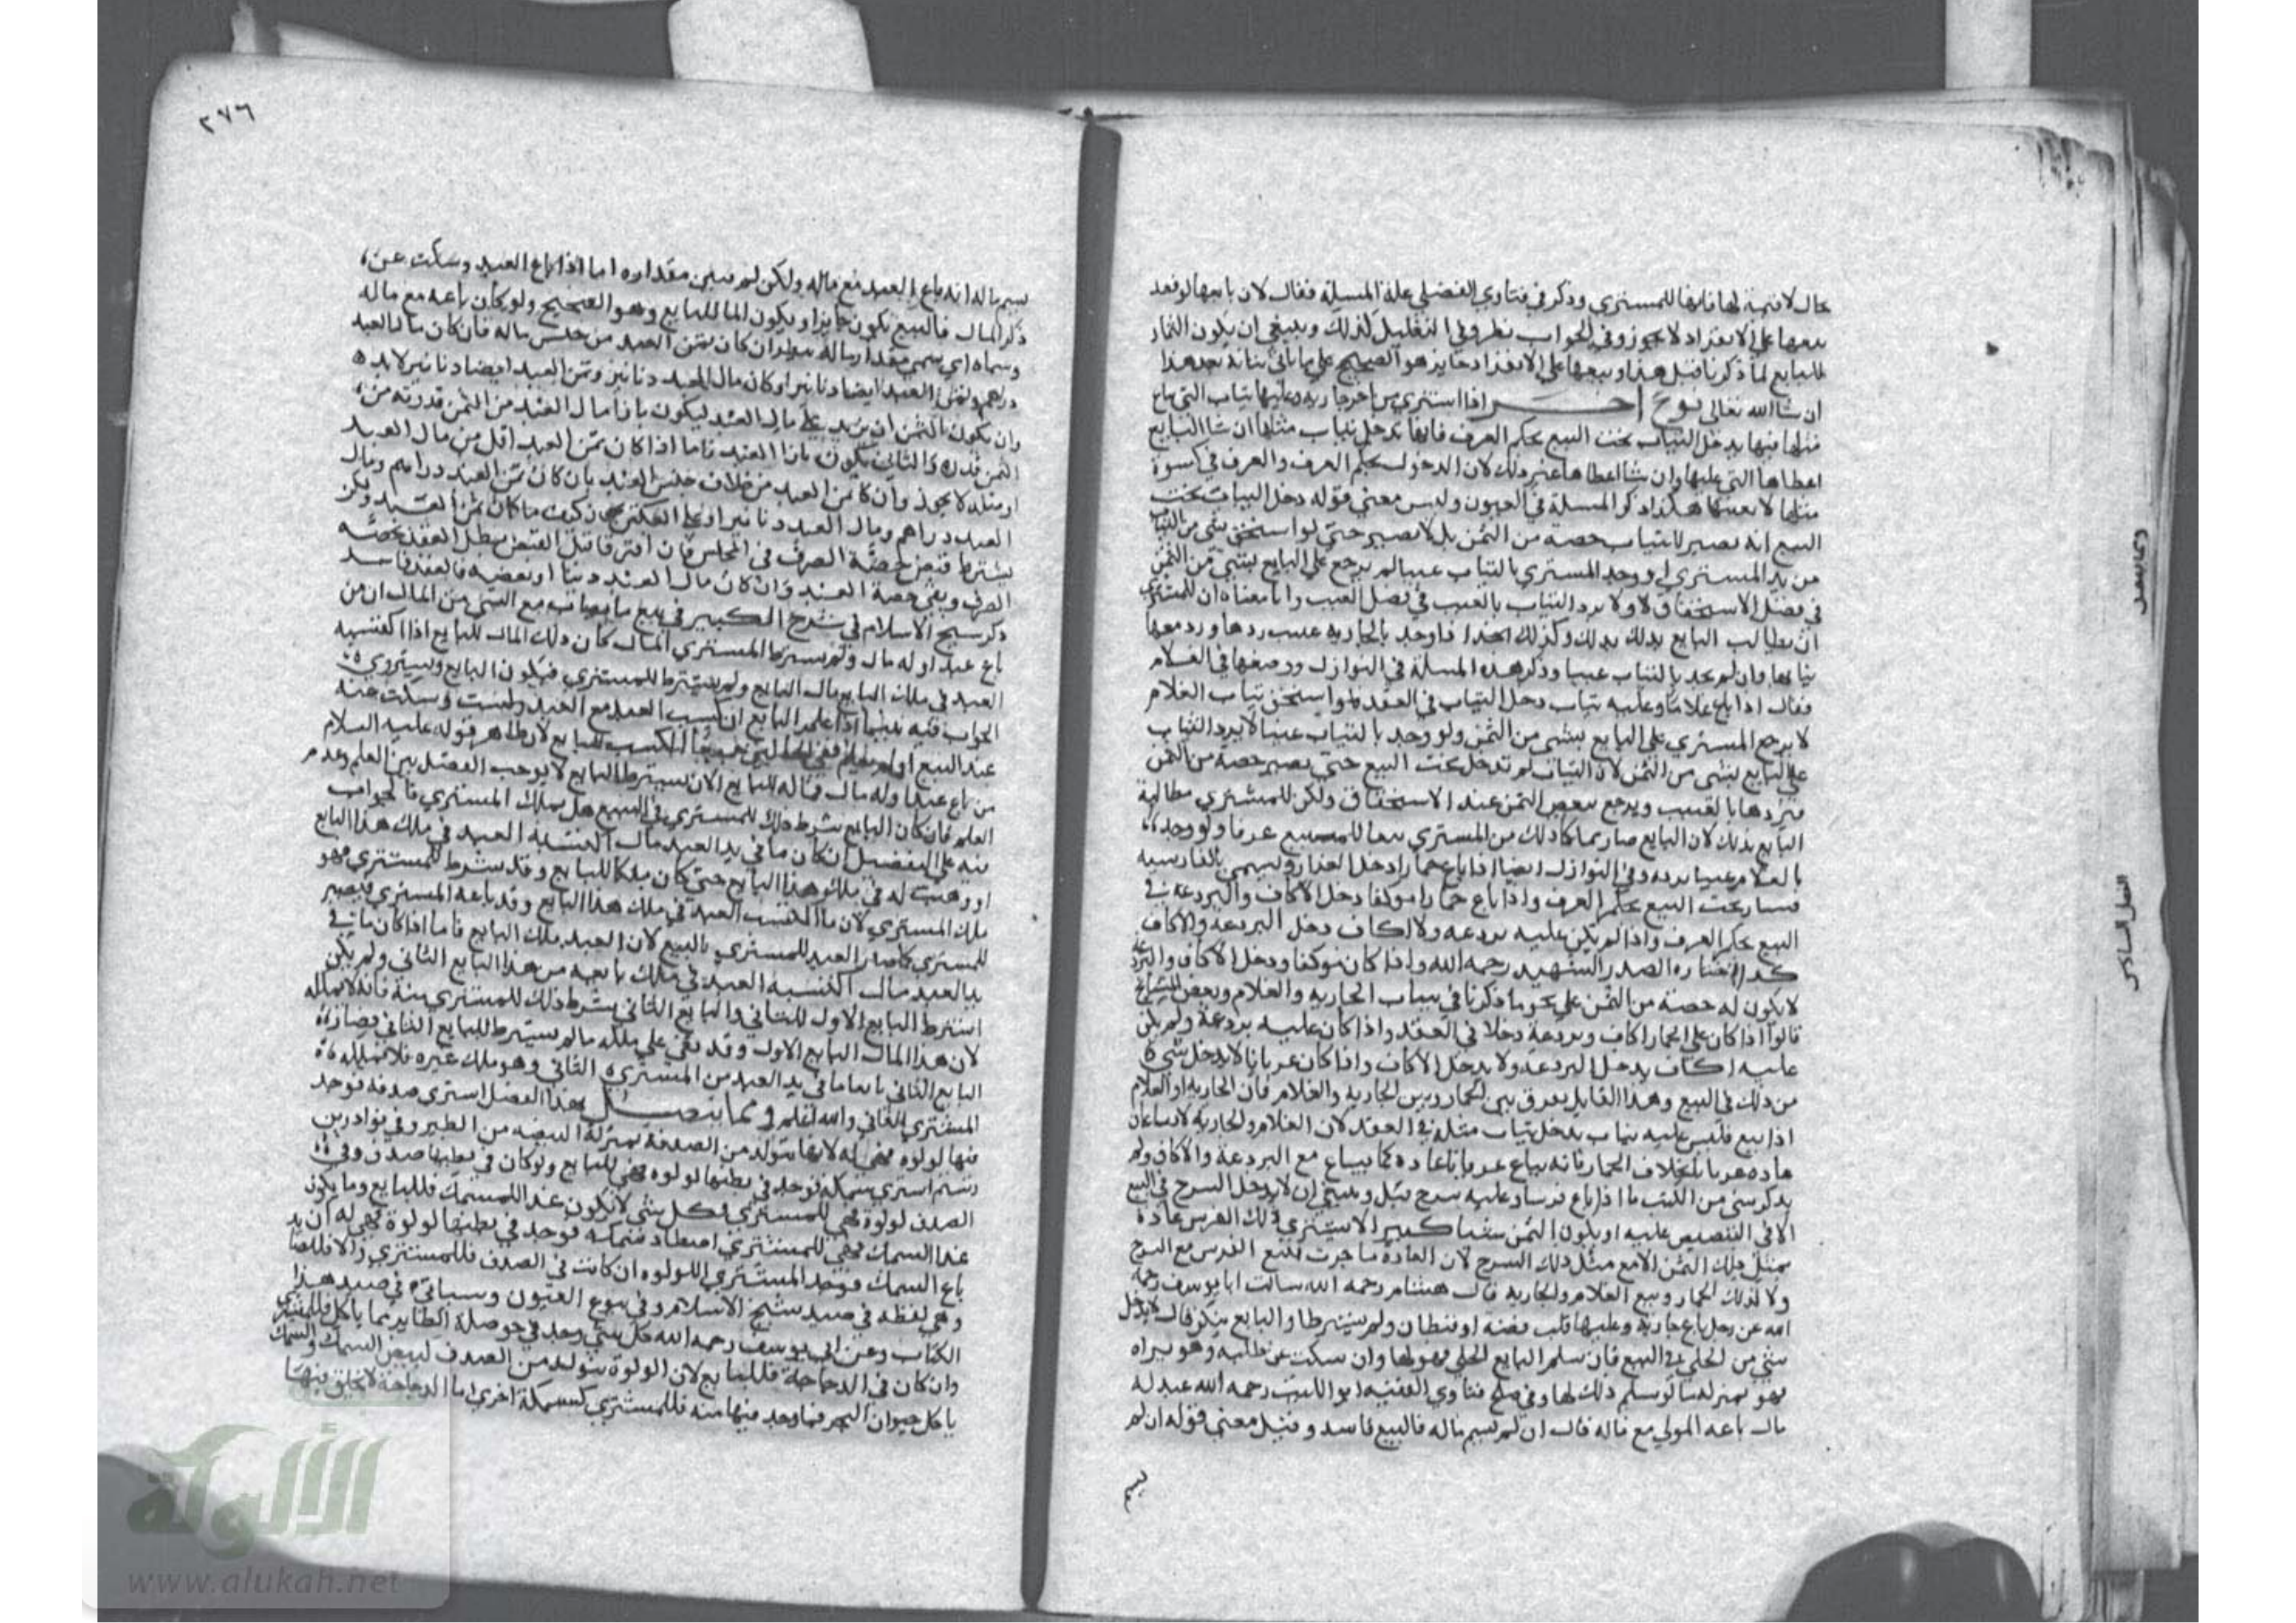 حال لا قيمة لها فانها للمشتري وذكر في فتاوي الفضلي علة المسيلة فقال لان بايعها لو قصد
بيعها على الانفراد لا يجوز وفي الجواب نظر وفي التعليل كذلك وينبغي ان يكون الثمار
للبايع لما ذكرنا قبل هذا وبيعها على الانفراد جايز هو الصحيح على ما ياتي بيانه بعد هذا
ان شا الله تعالى نوع اخر اذا اشترى من اخر جارية وعليها ثياب التي يباع
مثلها فيها يدخل الثياب تحت البيع بحكم العرف فانها تدخل ثياب مثلها ان شا البايع
اعطاها التي عليها وان شا اعطاها غير ذلك لان الدخول بحكم العرف والعرف في كسوة
مثلها لا بعينها هكذا ذكر المسيلة في العيون وليس معنى قوله دخل الثياب تحت
البيع انه يصير للثياب حصة من الثمن بل لا يصير حتى لو استحق شي من الثياب
من يد المشتري او وجد المشتري بالثياب عيبا لم يرجع على البايع بشي من الثمن
في فصل الاستحقاق لا ولا يرد الثياب بالعيب في فصل العيب وانا معناه ان للمشتري
ان يطالب البايع بذلك وكذلك اذا وجد بالجارية عيب ردها ورد معها
ثيابها وان لم يجد بالثياب عيبا وذكر هذه المسلة في النوازل ووضعها في الغلام
فقال اذا باع غلاما وعليه ثياب دخل الثياب في العقد فلو استحق ثياب الغلام
لا يرجع المشتري على البايع بشي من الثمن ولو وجد بالثياب عيبا لا يرد الثياب
على البايع بشي من الثمن لان الثياب لم تدخل تحت البيع حتى يصير حصه من الثمن
فيردها بالعيب ويرجع ببعض الثمن عند الاستحقاق ولكن للمشتري مطالبة
البايع بذلك لان البايع صار بما كان ذلك من المشتري تبعا للمبيع عرفا ولو وجد
بالغلام عيبا يرده وفي النوازل ايضا اذا باع حمارا دخل العذار ويسمى بالفارسيه
فسار تحت البيع بحكم العرف واذا باع حمارا موكفا دخل الاكاف والبردعة في
البيع بحكم العرف واذا لم يكن عليه بردعه ولا اكاف دخل البردعة والاكاف
كذا اختاره الصدر الشهيد رحمه الله واذا كان موكفا ودخل الاكاف والبردعة
لا يكون له حصة من الثمن على نحو ما ذكرنا في ثياب الجارية والغلام وبعض المشايخ
قالوا اذا كان على الحمار اكاف وبردعة دخلا في العقد واذا كان عليه بردعة ولم يكن
عليه اكاف يدخل البردعة ولا يدخل الاكاف واذا كان عريانا لا يدخل شي
من ذلك في البيع وهذا القايل يفرق بين الحمار وبين الجارية والغلام فان الجارية او الغلام
اذا بيع فليس عليه ثياب يدخل ثياب مثله في العقد لان الغلام والجارية لا يباعان
عادة عريانا بخلاف الحمار فانه يباع عريانا عادة كما يباع مع البردعة والاكاف ولم
يذكر شي من الكتب ما اذا باع فرسا وعليه سرج قيل وينبغي ان لا يدخل السرج في البيع
الا في التنصيص عليه او يكون الثمن شيا كبيرا لا يشترى ذلك الفرس عادة
بمثل ذلك الثمن الا مع مثل ذلك السرج لان العادة ما جرت ببيع الفرس مع السرج
ولا كذلك الحمار وبيع الغلام والجارية قال هشام رحمه الله سالت ابا يوسف رحمه
الله عن رجل باع جارية وعليها قلب فضة او قرطان ولم يشترطا والبايع ينكر قال لا يدخل
شي من الحلي في البيع فان سلم البايع الحلي فهو لها وان سكت عن طلبه وهو يراه
فهو بمنزلة ما لو سلم ذلك لها وفي صلح فتاوي الفقيه ابو الليث رحمه الله عبد له
مال باعه المولي مع ماله قال ان لم يسم ماله فالبيع فاسد وقيل معنى قوله ان لم
يسم
٢٧٦
يسم ماله انه باع العبد مع ماله ولكن لم يبين مقداره اما اذا باع العبد وسكت عن
ذكر المال فالبيع يكون جايزا ويكون المال للبايع وهو الصحيح ولو كان باعه مع ماله
وسماه اي سمى مقدار ماله ينظر ان كان ثمن العبد من جنس ماله فان كان مال العبد
دراهم وثمن العبد ايضا او كان مال العبد دنانير وثمن العبد ايضا دنانير لا بد
وان يكون الثمن ان يزيد على مال العبد ليكون بازا مال العبد من الثمن قدره من
الثمن قدره والثاني يكون بازا العبد فاما اذا كان ثمن العبد اقل من مال العبد
او مثله لا يجوز وان كان ثمن العبد من خلاف جنس العبد بان كان ثمن العبد دراهم ومال
العبد دراهم ومال العبد دنانير او على العكس يجاز كيف ما كان ثمن العبد ولكن
يشترط قبض حصة الصرف في المجلس فان افترقا قبل القبض بطل العقد بحصة
الصرف وبقي حصة العبد وان كان مال العبد دينا او بعضه فالعقد فاسد
ذكر شيخ الاسلام في شرح الكبير في بيع ما يصاب مع الشي من المال ان من
باع عبدا وله مال ولم يشترط المشتري المال كان ذلك المال للبايع اذا اكتسبه
العبد في ملك البايع مال البايع ولم يشترط للمشتري فيكون البايع ويستوي
الجواب فيه بينما اذا علم البايع ان اكتسب العبد مع العبد وسكت عنه
عند البيع او لم يعلم ففي الحالتين جميعا الكسب للبايع لان ظاهر قوله عليه السلام
من باع عبدا وله مال فماله للبايع الا ان يشترط البايع لا يوجب الفصل بين العلم وعدم
العلم فان كان البايع شرط ذلك للمشتري في البيع هل يملك المشتري فالجواب
فيه على التفصيل ان كان ما في يد العبد مال اكتسبه العبد في ملك هذا البايع
او وهب له في ملك هذا البايع حتى كان ملكا للبايع وقد شرط للمشتري فهو
ملك المشتري لان ما اكتسب العبد في ملك هذا البايع وقد باعه المشتري فيصير
للمشتري كما صار العبد للمشتري بالبيع لان العبد ملك البايع فاما اذا كان ما في
يد العبد مال اكتسبه العبد في ملك بايعه من هذا البايع الثاني ولم يكن
اشترط البايع الاول للثاني والبايع الثاني يشرط ذلك للمشتري منه فانه لا يملكه
لان هذا المال البايع الاول وقد بقي على ملكه ما لم يشترط للبايع الثاني فصار
البايع الثاني بايعا ما في يد العبد من المشتري الثاني وهو ملك غيره فلا يملكه
المشتري الثاني والله اعلم ومما يتصل بهذا الفصل اشترى صدفة فوجد
فيها لولوة فهي له لانها تتولد من الصدفة بمنزلة البيضة من الطير وفي نوادر بن
رستم اشترى سمكة فوجد في بطنها لولوه فهي للبايع ولو كان في بطنها صدف وفي
الصدف لولوة فهي للمشتري وكل شي لا يكون غذا للسمك فللبايع وما يكون
غذا السمك فهي للمشتري اصطاد سمكة فوجد في بطنها لولوة فهي له ان
باع السمك فوجد المشتري اللولوه ان كانت في الصدف فللمشتري والا فللصياد
وهي لفظه في صيد شيخ الاسلام وفي بيوع العيون وسياتي في صيد هذا
الكتاب وعن ابي يوسف رحمه الله كل شي وجد في حوصلة الطاير مما ياكل فللمشتري
وان كان في الدجاجة فللبايع لان الولوة تتولد من الصدف لبعض السمك والسمك
ياكل حيوان البحر فما وجد فيها منه فللمشتري كسمكة اخرى اما الدجاجة لا يخلق فيها
ومما يتصل
الفصل السادس
الألوكة
www.alukah.net